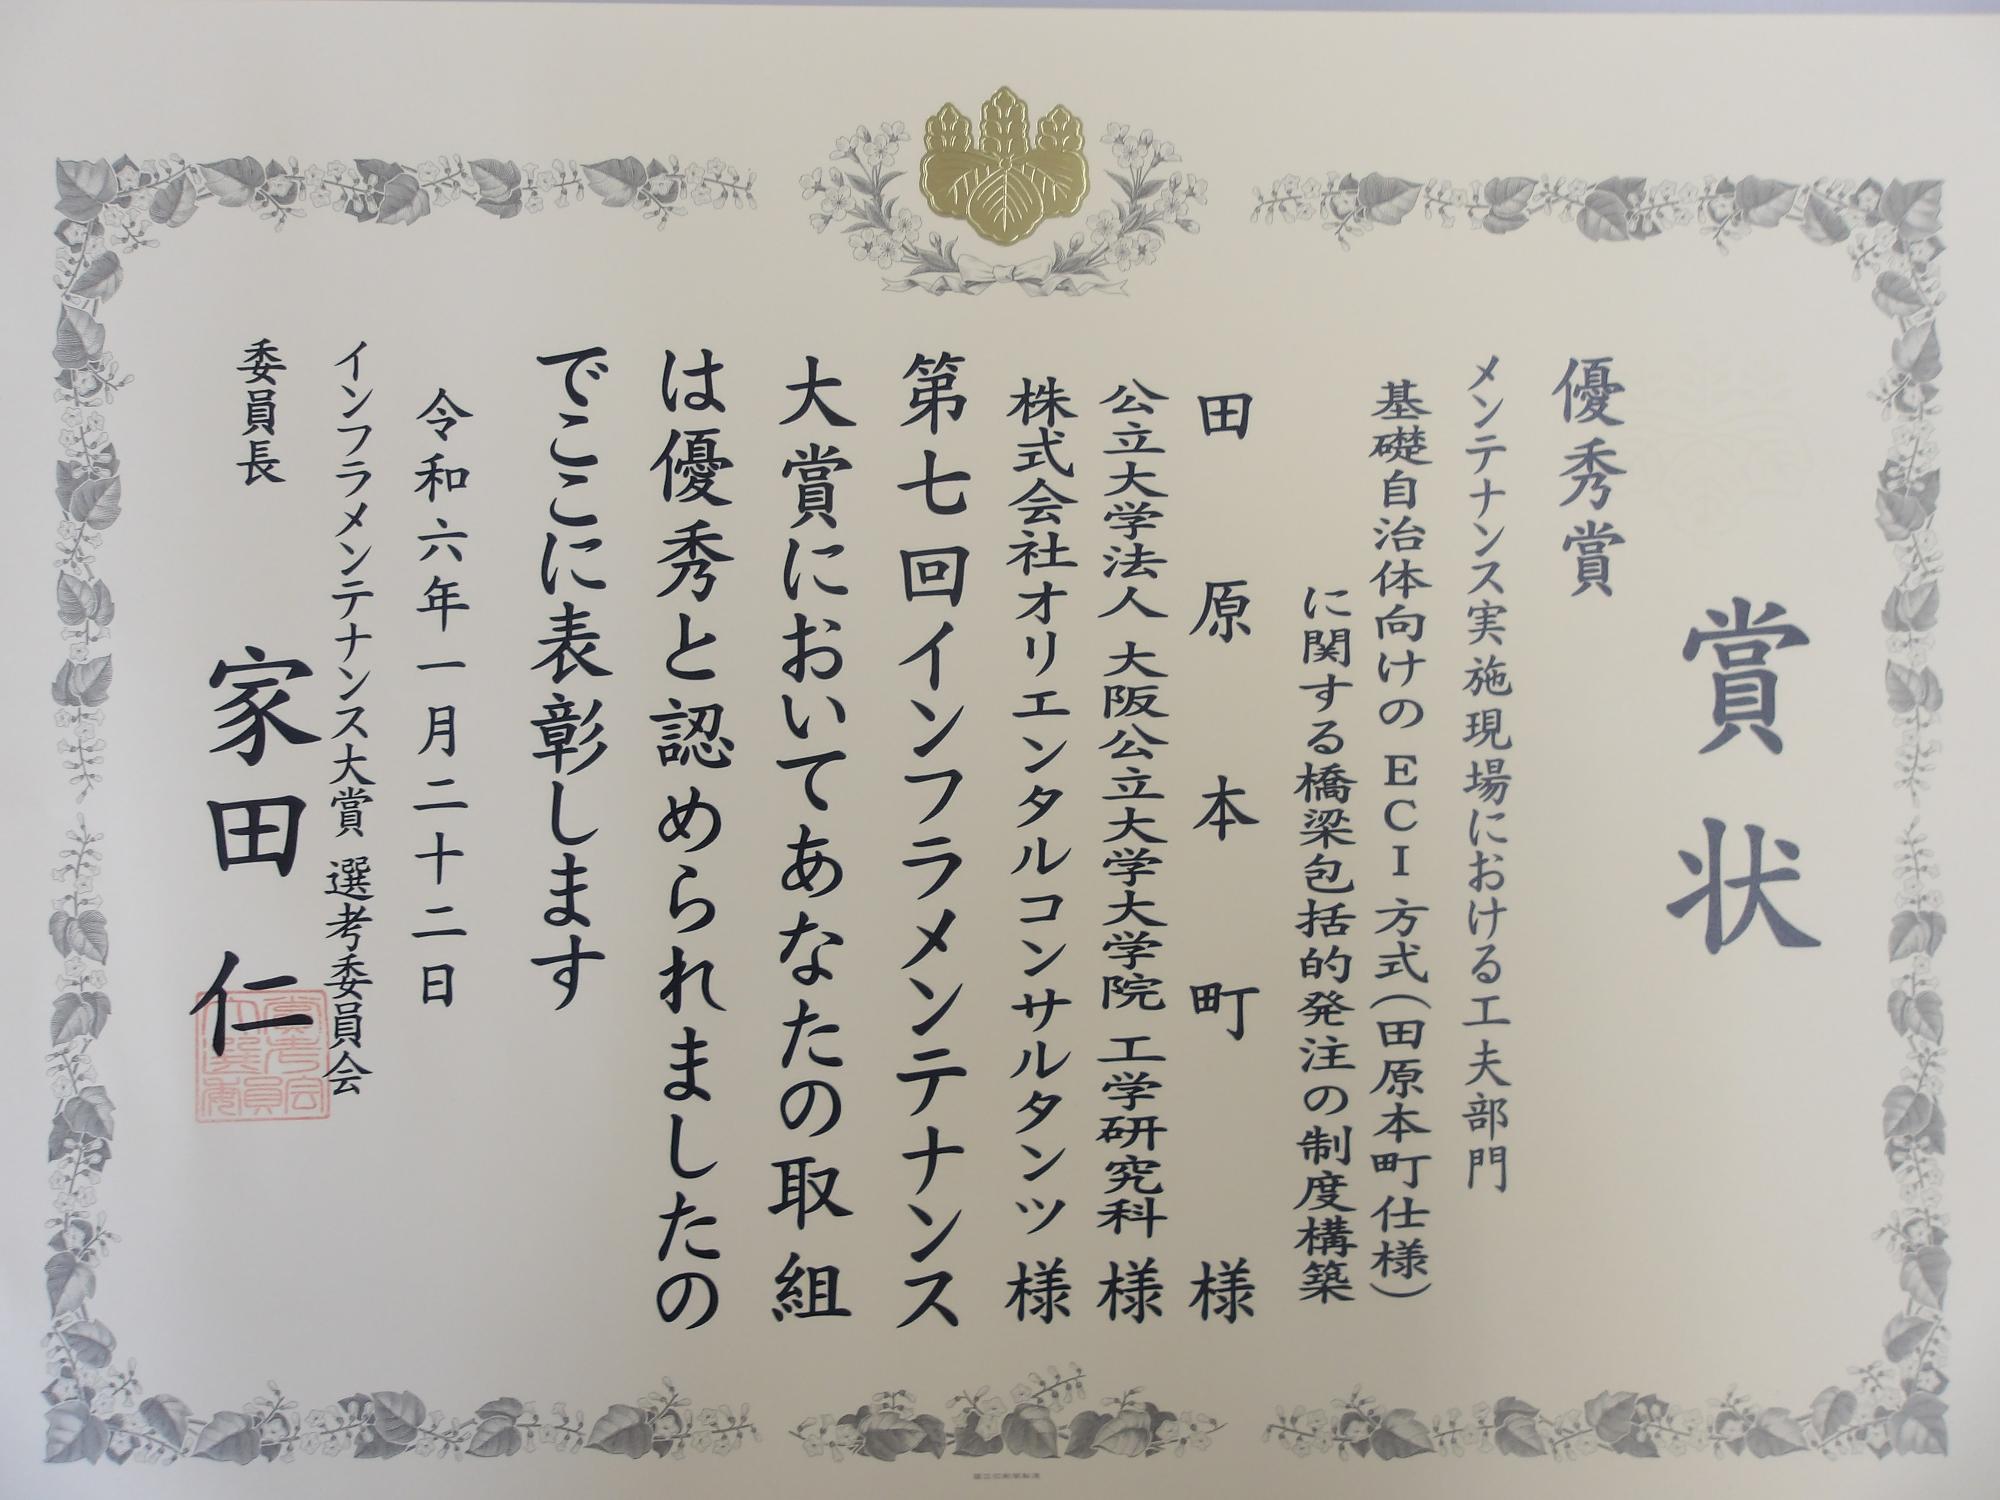 賞状
優秀賞
メンテナンス実施現場における工夫部門
基礎自治体向けのECI方式(田原本町仕様)
に関する橋梁包括的発注の制度構築
田原本町 様
公立大学法人 大阪公立大学大学院 工学研究科 様
株式会社オリエンタルコンサルタンツ 様
第七回インフラメンテナンス
大賞においてあなたの取組
は優秀と認められましたの
でここに表彰します
令和六年一月二十二日
インフラメンテナンス大賞 選考委員会
委員長 家田 仁